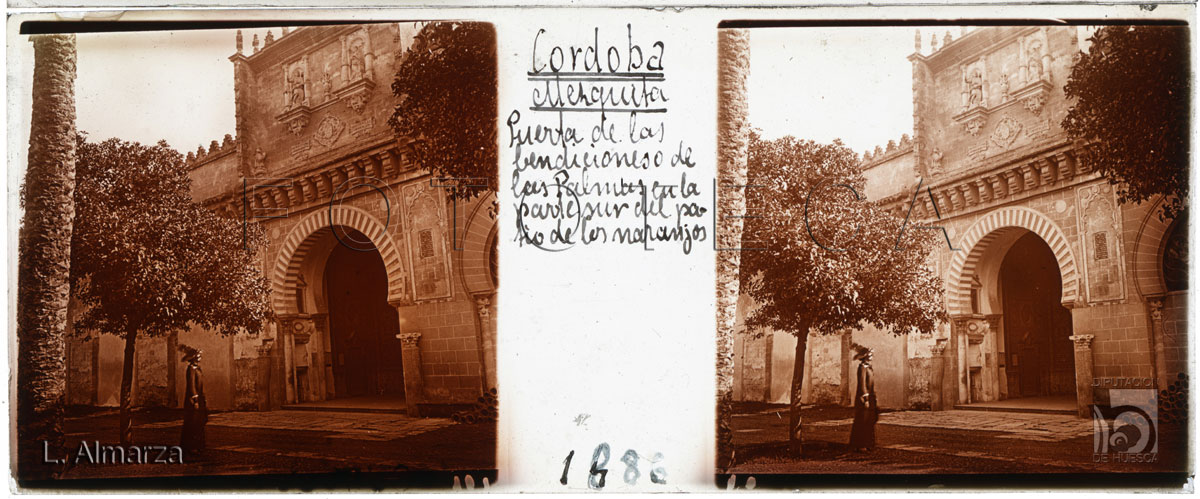 Cordoba
Mezquita
Puerta de las
bendiciones o de
las Palmas en la
parte sur del pa-
tio de los naranjos
FOTOTECA
DIPUTACIÓN
DE HUESCA
L. Almarza